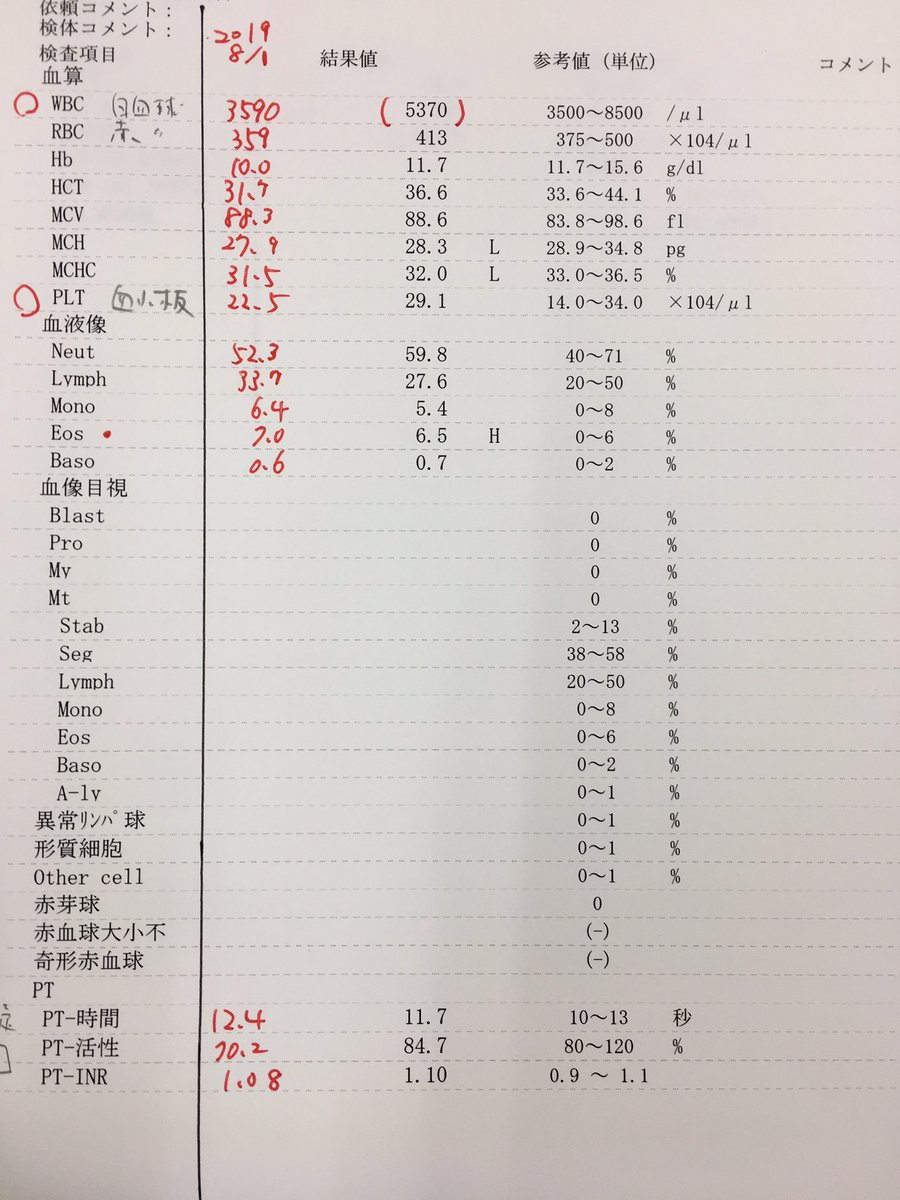 依頼コメント：
検体コメント： 2019
検査項目 8/1 結果値 参考値（単位） コメント
血算
WBC 白血球 3590 ( 5370 ) 3500～8500 /μl
RBC 赤〃 359 413 375～500 ×104/μl
Hb 10.0 11.7 11.7～15.6 g/dl
HCT 31.7 36.6 33.6～44.1 %
MCV 88.3 88.6 83.8～98.6 fl
MCH 27.9 28.3 L 28.9～34.8 pg
MCHC 31.5 32.0 L 33.0～36.5 %
PLT 血小板 22.5 29.1 14.0～34.0 ×104/μl
血液像
Neut 52.3 59.8 40～71 %
Lymph 33.7 27.6 20～50 %
Mono 6.4 5.4 0～8 %
Eos 7.0 6.5 H 0～6 %
Baso 0.6 0.7 0～2 %
血像目視
Blast 0 %
Pro 0 %
My 0 %
Mt 0 %
Stab 2～13 %
Seg 38～58 %
Lymph 20～50 %
Mono 0～8 %
Eos 0～6 %
Baso 0～2 %
A-ly 0～1 %
異常ﾘﾝﾊﾟ球 0～1 %
形質細胞 0～1 %
Other cell 0～1 %
赤芽球 0
赤血球大小不 (-)
奇形赤血球 (-)
PT
PT-時間 12.4 11.7 10～13 秒
PT-活性 70.2 84.7 80～120 %
PT-INR 1.08 1.10 0.9 ～ 1.1